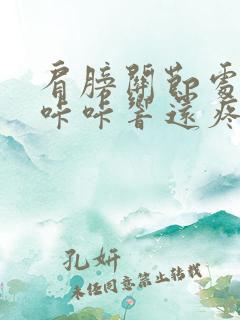 肩膀關節處
咔咔響還疼
孔妍
未经同意禁止转载